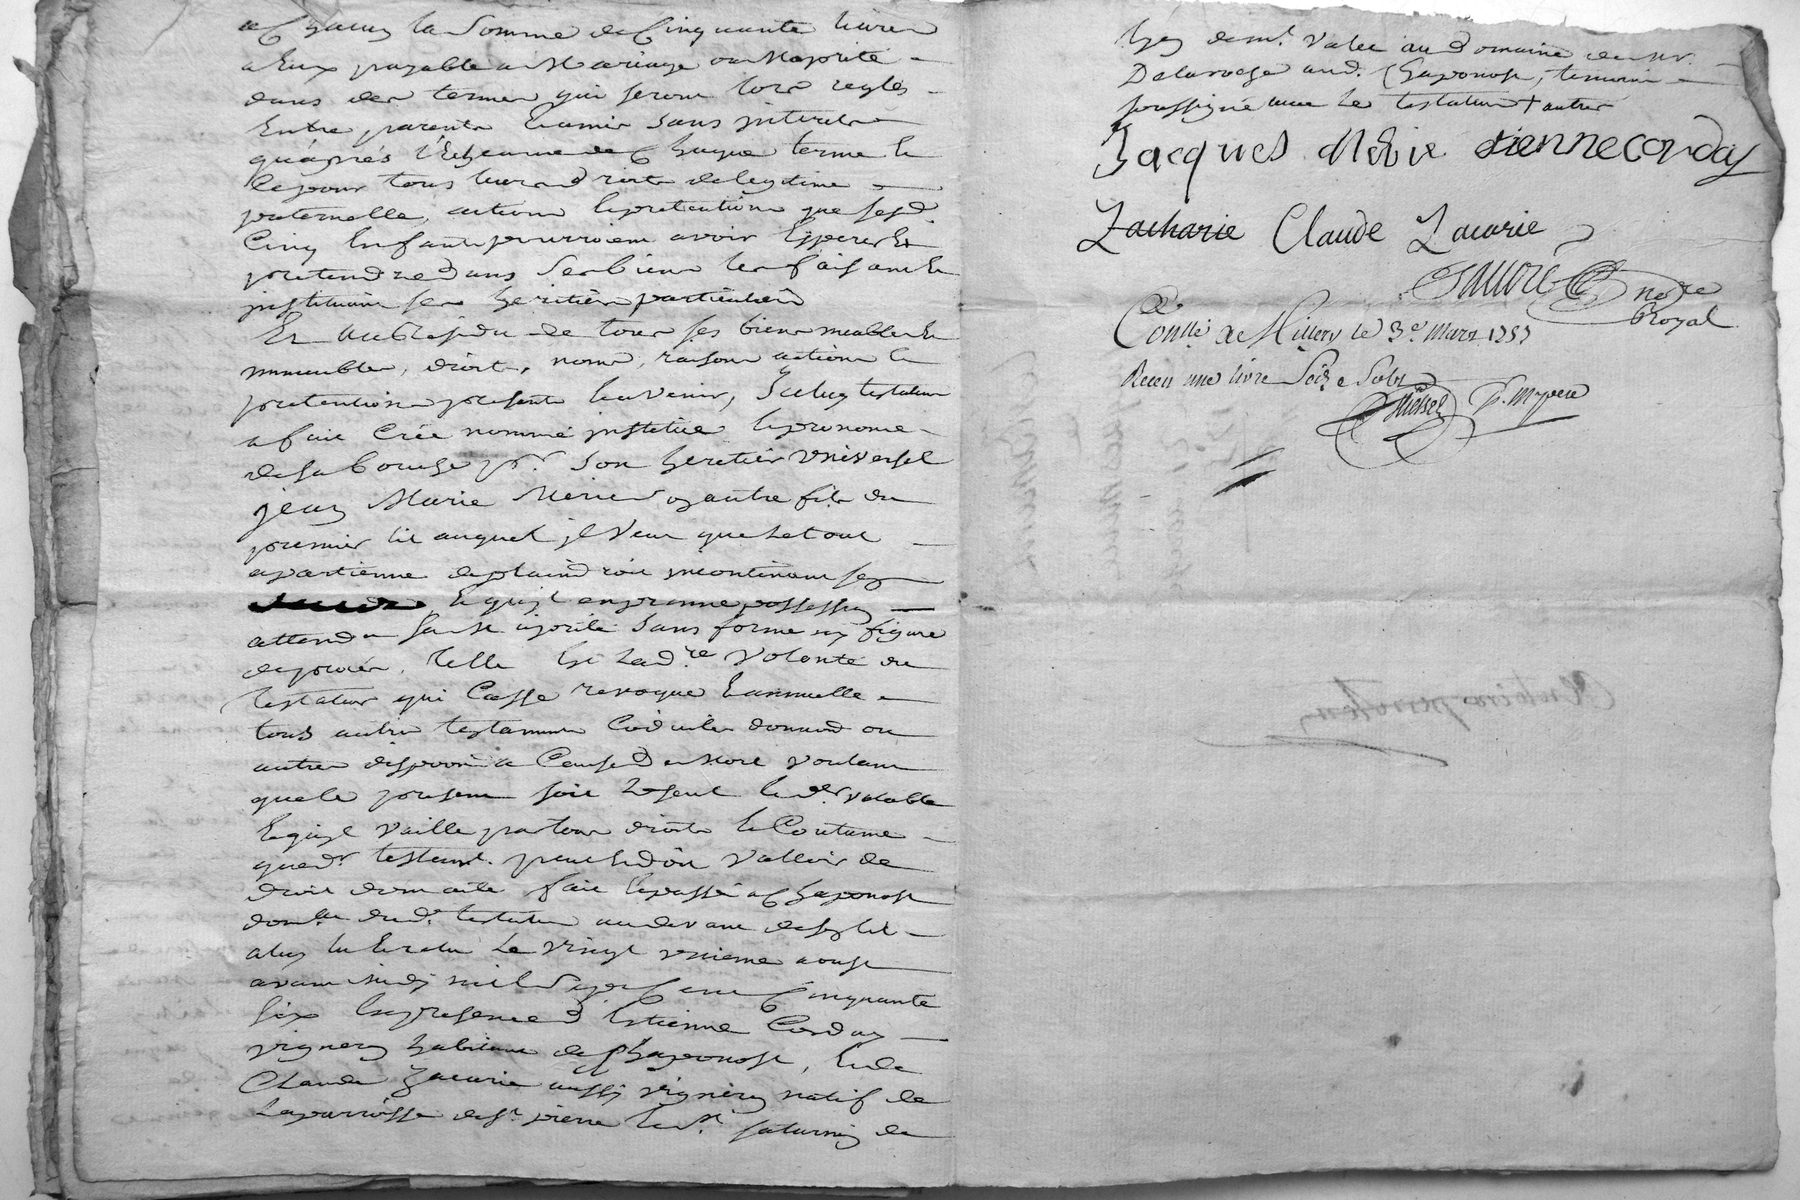 a Chacun la Somme de Cinquante livres
a Eux payable a Mariage ou Majorité
dans des termes qui seront lors reglés
Entre parents Et amis sans interets
qu'aprés l'Echeance de Chaque terme Et
Ce pour tous leurs droits de legitime
paternelle, actions Et pretentions que sesd.
Cinq Enfants pourroient avoir Esperer Et
pretendre dans Ses biens les faisant Et
instituant ses heritiers particuliers
Et au Residu de tous ses biens meubles Et
immeubles, droits, noms, raisons actions Et
pretentions presents Et avenir, Iceluy testateur
a fait Créé nommé institué Et prononcé
de sa bouche pr. son heretier Universel
jean Marie Merie autre fils du
premier lit auquel il Veut que Le tout
apartienne de plain droit incontinant son
Et qu'il en prenne possession
attendu sa Majorité Sans forme ny figure
de procès, telle Est Lad.re Volonté du
testateur qui Casse revoque Et annulle
tous autres testaments Codiciles donnaõns ou
autres disposõns a Cause de Mort Voulant
que le present soit Le seul Et der. valable
Et qu'il vaille par tous droits Et Coutume
que dr. testamt. peut Et doit Valloir de
droit dont acte fait Et passé a Chaponost
domlle dud. testateur au devant de son lit
a luy lu Et relu Le vingt unieme aoust
avant midy mil Sept Cent Cinquante
six En presence d'Estienne Corday
vigneron habitant de Chaponost, Et de
Claude Zacarie aussi vigneron natif de
La parroisse de St. pierre Et St. saturnin de
demt. Valet au domaine de Mr.
Delaroche aud. Chaponost, temoins
soussignés avec Le testateur + autres
Jacques Merie etienne corday
Zacharie Claude Zacarie
notre
Royal
Contllé a Millery le 3e. Mars 1757
Receu une livre Seize Sols